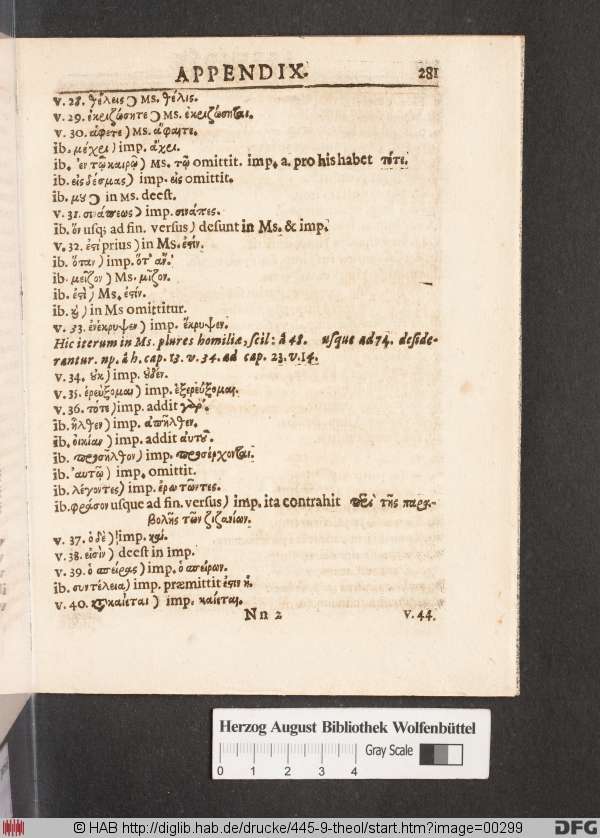 APPENDIX. 281
v. 28. θέλεις Ɔ Ms. θέλις.
v. 29. ἐκριζώσητε Ɔ Ms. ἐκριζώσηται.
v. 30. ἄφετε) Ms. ἄφαιτε.
ib. μέχρι) imp. ἄχρι.
ib. ἐν τῷ καιρῷ) Ms. τῷ omittit. imp. a. pro his habet τότε.
ib. εἰς δέσμας) imp. εἰς omittit.
ib. μου Ɔ in Ms. deest.
v. 31. σινάπεως) imp. σινάπες.
ib. ὃν usq; ad fin. versus) desunt in Ms. & imp.
v. 32. ἐστὶ prius) in Ms. ἐστίν.
ib. ὅταν) imp. ὅτ' ἄν.
ib. μεῖζον) Ms. μῖζον.
ib. ἐστὶ) Ms. ἐστίν.
ib. ȣ) in Ms omittitur.
v. 33. ἐνέκρυψεν) imp. ἔκρυψεν.
Hic iterum in Ms. plures homiliæ, scil: à 48. usque ad 74. deside-
rantur. np. à h. cap. 13. v. 34. ad cap. 23. v. 14.
v. 34. ȣκ) imp. ȣδέν.
v. 35. ἐρεύξομαι) imp. ἐξερεύξομαι.
v. 36. τότε) imp. addit γὰρ.
ib. ἦλθεν) imp. ἀπῆλθεν.
ib. οἰκίαν) imp. addit αὐτοῦ.
ib. προσῆλθον) imp. προσέρχονται.
ib. αὐτῷ) imp. omittit.
ib. λέγοντες) imp. ἐρωτῶντες.
ib. φράσον usque ad fin. versus) imp. ita contrahit περὶ τῆς παρα-
βολῆς τῶν ζιζανίων.
v. 37. ὁ δὲ) imp. καί.
v. 38. εἰσὶν) deest in imp.
v. 39. ὁ σπείρας) imp. ὁ σπείρων.
ib. συντέλεια) imp. præmittit ἐστιν ἡ.
v. 40. κατακαίεται) imp. καίεται.
Nn 2 v. 44.
Herzog August Bibliothek Wolfenbüttel
Gray Scale
0 1 2 3 4
© HAB http://diglib.hab.de/drucke/445-9-theol/start.htm?image=00299
DFG